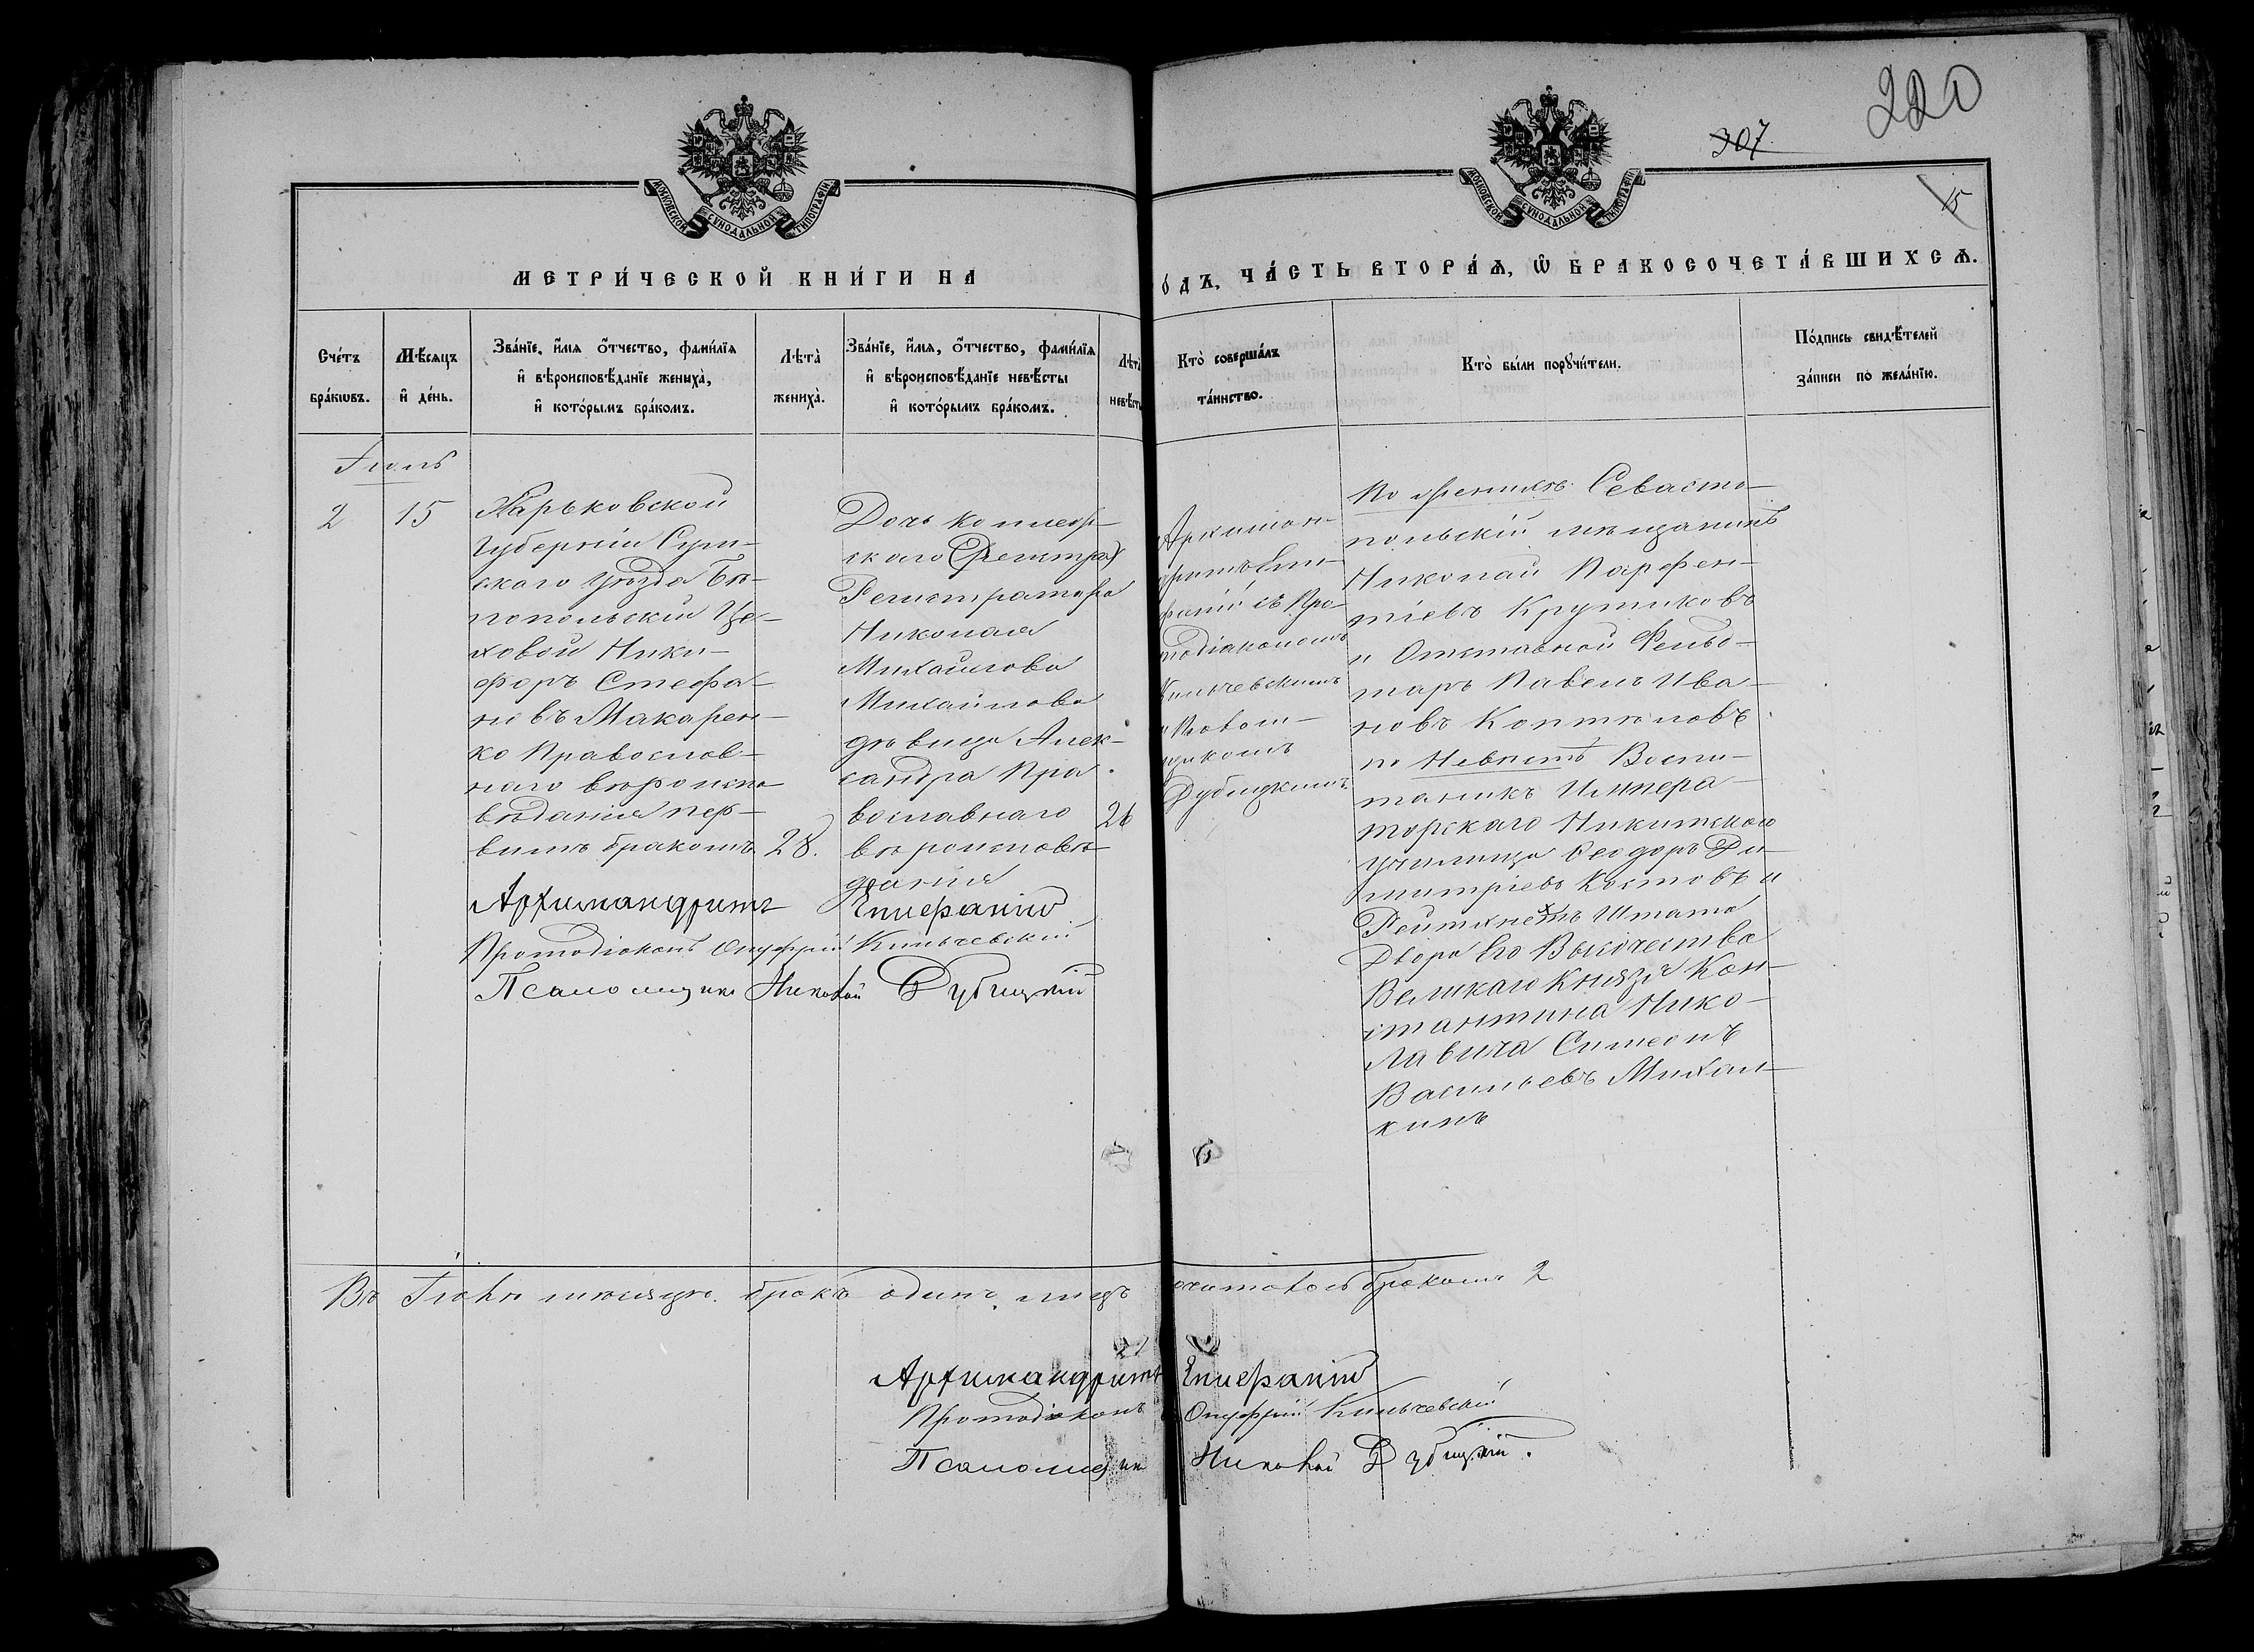 220
307
15
МОСКОВСКОЙ СѴНОДАЛЬНОЙ ТИПОГРАФІИ
МОСКОВСКОЙ СѴНОДАЛЬНОЙ ТИПОГРАФІИ
МЕТРИ́ЧЕСКОЙ КНИ́ГИ НА
О́ДЪ, ЧА́СТЬ ВТОРА́Ѧ, Ѿ БРАКОСОЧЕТА́ВШИХСѦ.
Сче́тъ
бра́кѡвъ.
Мѣ́сяцъ
и҆ де́нь.
Зва́нїе, и҆́мѧ ѻ҆́тчество, фами́лїѧ
и҆ вѣроисповѣ́данїе жениха̀,
и҆ кото́рымъ бра́комъ.
Лѣта̀
жениха̀.
Зва́нїе, и҆́мѧ, ѻ҆́тчество, фами́лїѧ
и҆ вѣроисповѣ́данїе невѣ́сты
и҆ кото́рымъ бра́комъ.
Лѣта̀
невѣ́сты
Кто̀ соверша́лъ
та́инство.
Кто̀ бы́ли порꙋчи́тели.
По́дпись свидѣ́телей
за́писи по жела́нїю.
Іюль
2
15
Харьковской
Губерніи Сум-
скаго Уѣзда Бѣ-
лопольскій Це-
ховой Ники-
форъ Стефа-
новъ Макарен-
ко Православ-
наго вѣроиспо
вѣданія пер-
вымъ бракомъ
28.
Дочь Коллеж-
скаго (Регистра)
Регистратора
Николая
Михайлова
Михайлова
дѣвица Алек-
сандра Пра-
вославнаго
вѣроисповѣ-
данія
26
Архиман-
дритъ Епи-
фаній съ Про-
тодіакономъ
Кильчевскимъ
и Псалом-
щикомъ
Дубицкимъ
По женихѣ: Севасто-
польскій мѣщанинъ
Николай Парфен-
тіевъ Крутиковъ
и Отставной Фельд-
шаръ Павелъ Ива-
новъ Коптиловъ.
по Невѣстѣ Воспи-
таникъ Импера-
торскаго Никитскаго
Училища Ѳеодоръ Ди-
митріевъ Костовъ и
Штата
Двора Его Высочества
Великаго Князя Кон-
стантина Нико-
лавича Симеонъ
Васильевъ Михал-
кинъ
Архимандритъ Епифаній
Протодіаконъ Онуфрій Кильчевскій
Псаломщикъ Николай Дубицкій
Въ Іюлѣ мѣсяцѣ бракъ одинъ, лицъ сочитавш бракомъ 2
Архимандритъ Епифаній
Протодіаконъ Онуфрій Кильчевскій
Псаломщикъ Николай Дубицкій.